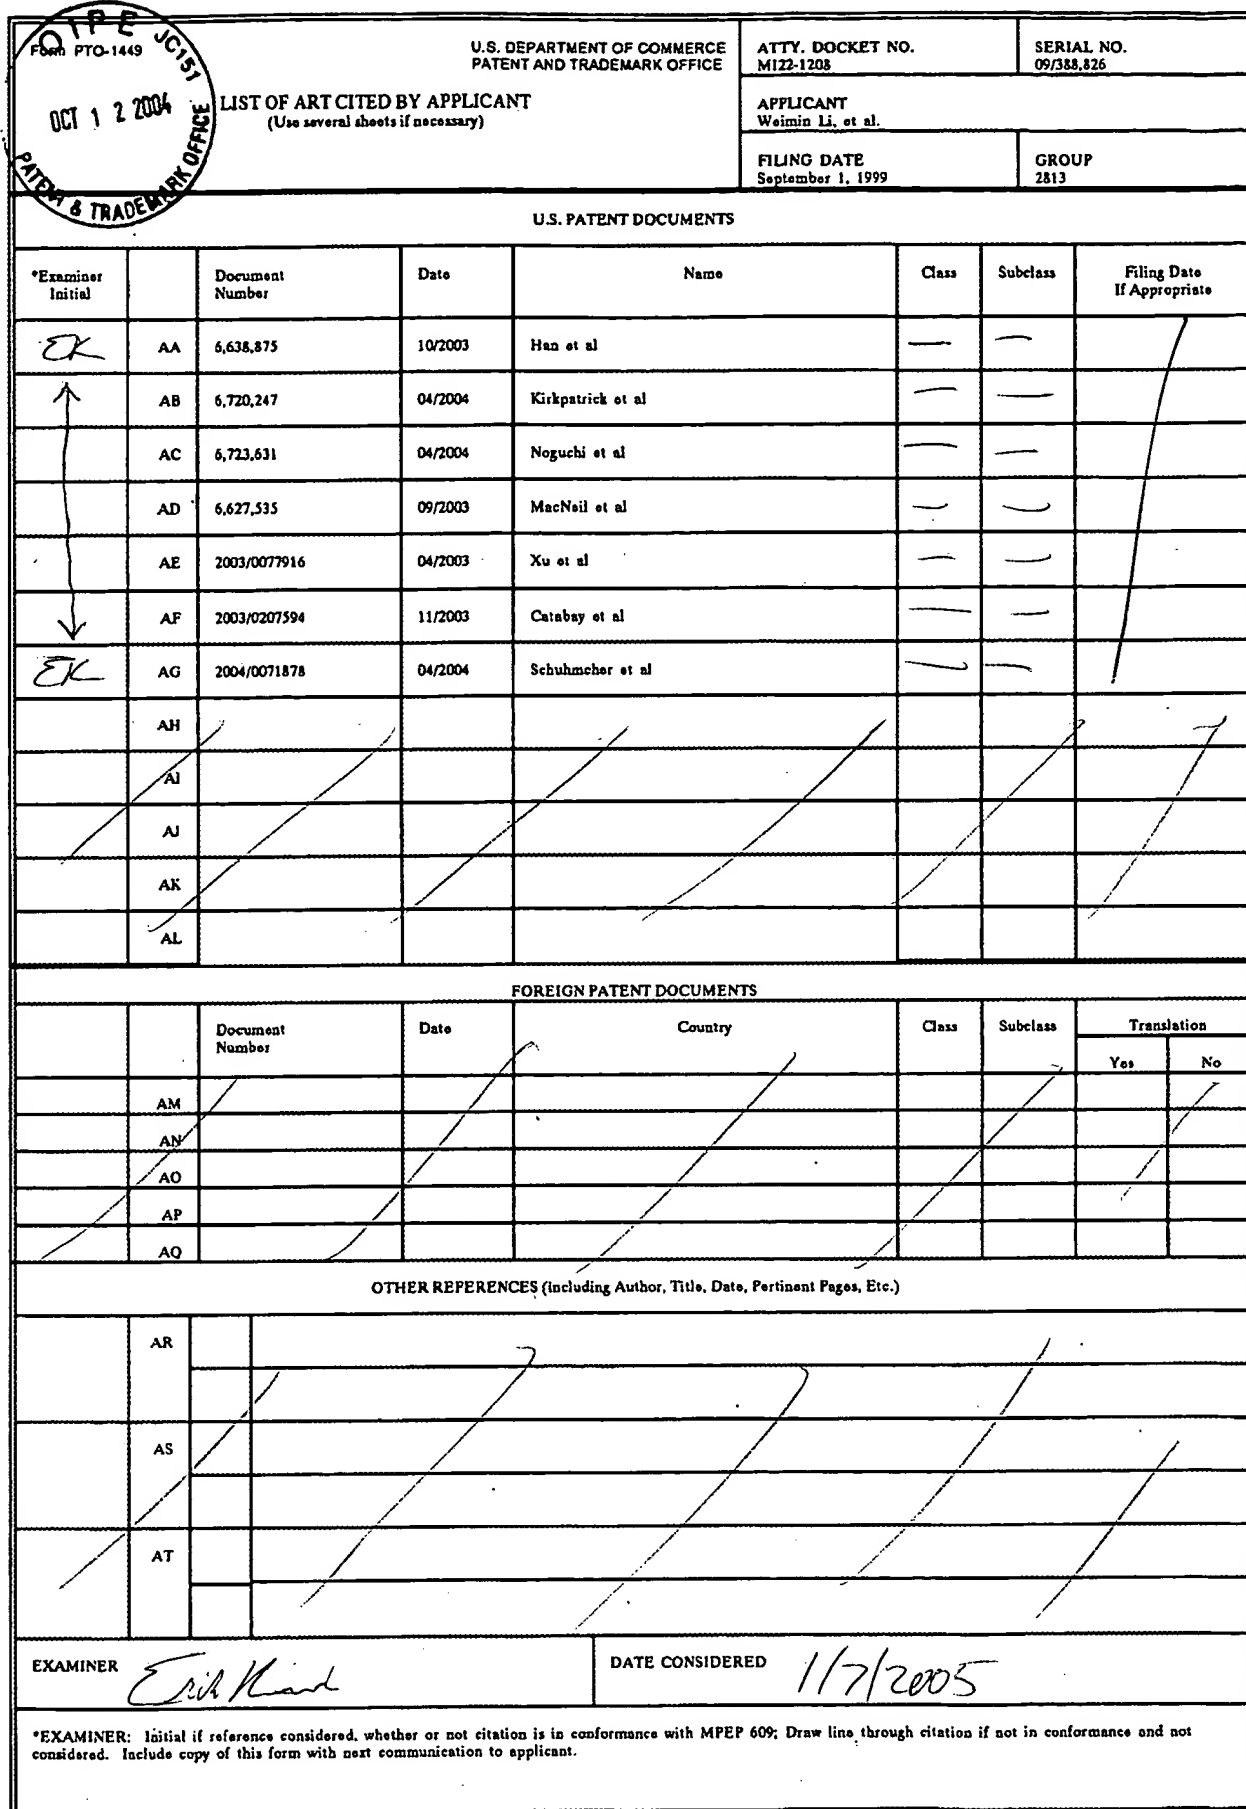 OIPE JC151
OCT 12 2004
PATENT & TRADEMARK OFFICE
Form PTO-1449
U.S. DEPARTMENT OF COMMERCE
PATENT AND TRADEMARK OFFICE
LIST OF ART CITED BY APPLICANT
(Use several sheets if necessary)
ATTY. DOCKET NO.
MI22-1208
SERIAL NO.
09/388,826
APPLICANT
Weimin Li, et al.
FILING DATE
September 1, 1999
GROUP
2813
U.S. PATENT DOCUMENTS
*Examiner Initial Document Number Date Name Class Subclass Filing Date If Appropriate
EK AA 6,638,875 10/2003 Han et al — —
AB 6,720,247 04/2004 Kirkpatrick et al — —
AC 6,723,631 04/2004 Noguchi et al — —
AD 6,627,535 09/2003 MacNeil et al — —
AE 2003/0077916 04/2003 Xu et al — —
AF 2003/0207594 11/2003 Catabay et al — —
EK AG 2004/0071878 04/2004 Schuhmcher et al — —
AH
AI
AJ
AK
AL
FOREIGN PATENT DOCUMENTS
Document Number Date Country Class Subclass Translation
Yes No
AM
AN
AO
AP
AQ
OTHER REFERENCES (Including Author, Title, Date, Pertinent Pages, Etc.)
AR
AS
AT
EXAMINER Erik Kielin
DATE CONSIDERED 1/7/2005
*EXAMINER: Initial if reference considered, whether or not citation is in conformance with MPEP 609; Draw line through citation if not in conformance and not
considered. Include copy of this form with next communication to applicant.